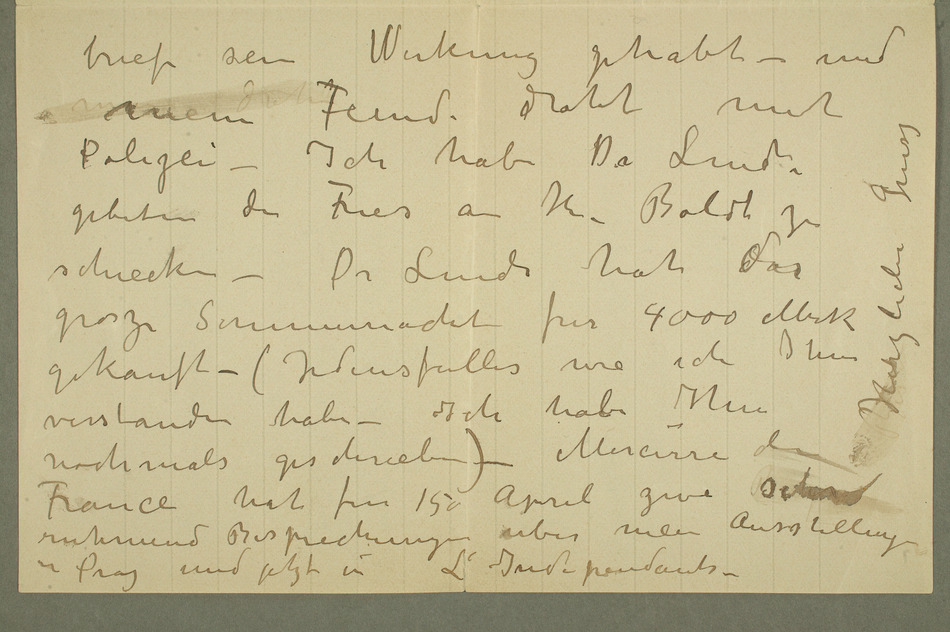 brief sein Wirkung gehabt – und
mein Feind. droht mit
Polizei – Ich habe Dr Linde
gebeten den Fries an Hr. Boldt zu
schicken – Dr Linde hat das
grosze Sommernacht für 4000 Mark
gekauft – (Jedensfalles wie ich Ihm
verstanden habe – Ich habe Ihm
nochmals geschrieben) – Mercürre de
France hat für 15º April zwei
rühmend Besprechungen über mein Ausstellung
in Prag und jetzt in L'Indépendants –
Herzlichen Gruss